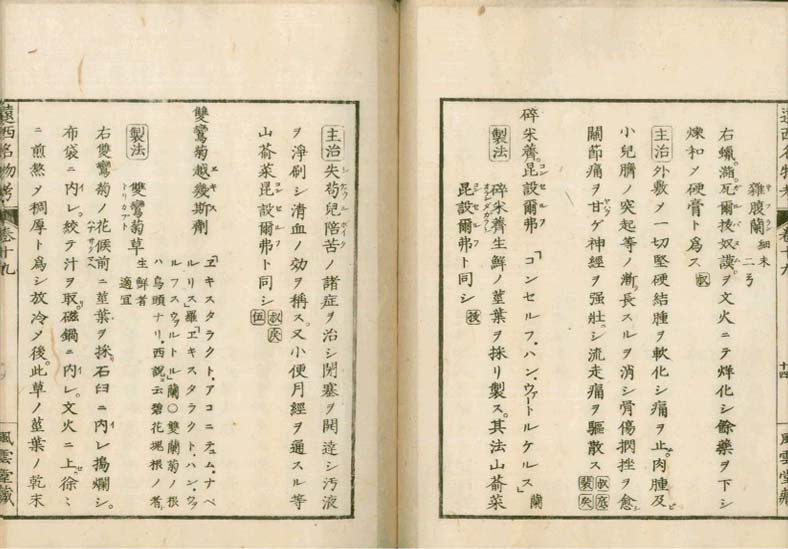 遠西名物考
卷十九
十四
風雲堂藏
雜腹蘭細末 二弓
サフラン
右蠟瀦瓦爾抜奴謨ヲ文火ニテ烊化シ餘藥ヲ下シ
ガルバヌム
煉和ヲ硬膏ト為ス
主治外敷ヲ一切堅硬結腫ヲ軟化シ痛ヲ止。肉腫及
小兒臍ノ突起等ノ漸長スルヲ消シ骨傷捫挫ヲ愈
關節痛ヲ甘ゲ神經ヲ强壯シ流走痛ヲ驅散ス
碎米薺昆設爾弗
コンセルフ
「コンセルフ、ハン、ヴァートルケルス」蘭
製法
碎米薺生鮮ノ莖葉ヲ採リ製ス。其法山萮菜
昆設爾弗ト同シ
コンセルフ
主治失苟兒陪苦ノ諸症ヲ治シ閉塞ヲ開達シ汚液
シケウルボイク
ヲ淨刷シ清血ノ効ヲ稱ス。又小便月經ヲ通スル等
山萮菜昆設爾弗ト同シ
コンセルフ
雙鸞菊越幾斯劑
ヱキス
「ヱキスタラクト、アコニチュム、ナペ
ルリス」羅「ヱキスタラクト、ハン、ヴァ
ルフスヴォルトル」蘭〇雙蘭菊ノ根
ハ烏頭ナリ、西説云碧花塊根ノ者
製法
雙鸞菊草
トリカブト
生鮮者
適宜
右雙鸞菊ノ花候前ニ莖葉ヲ採石臼ニ内レ搗爛シ
ハナサクマヘ
布袋ニ内レ。絞テ汁ヲ取。磁鍋ニ内レ。文火ニ上。徐々
ニ煎熬ヲ稠厚ト爲シ放冷タ後。此草ノ莖葉ノ乾末
遠西名物考
卷十九
風雲堂藏